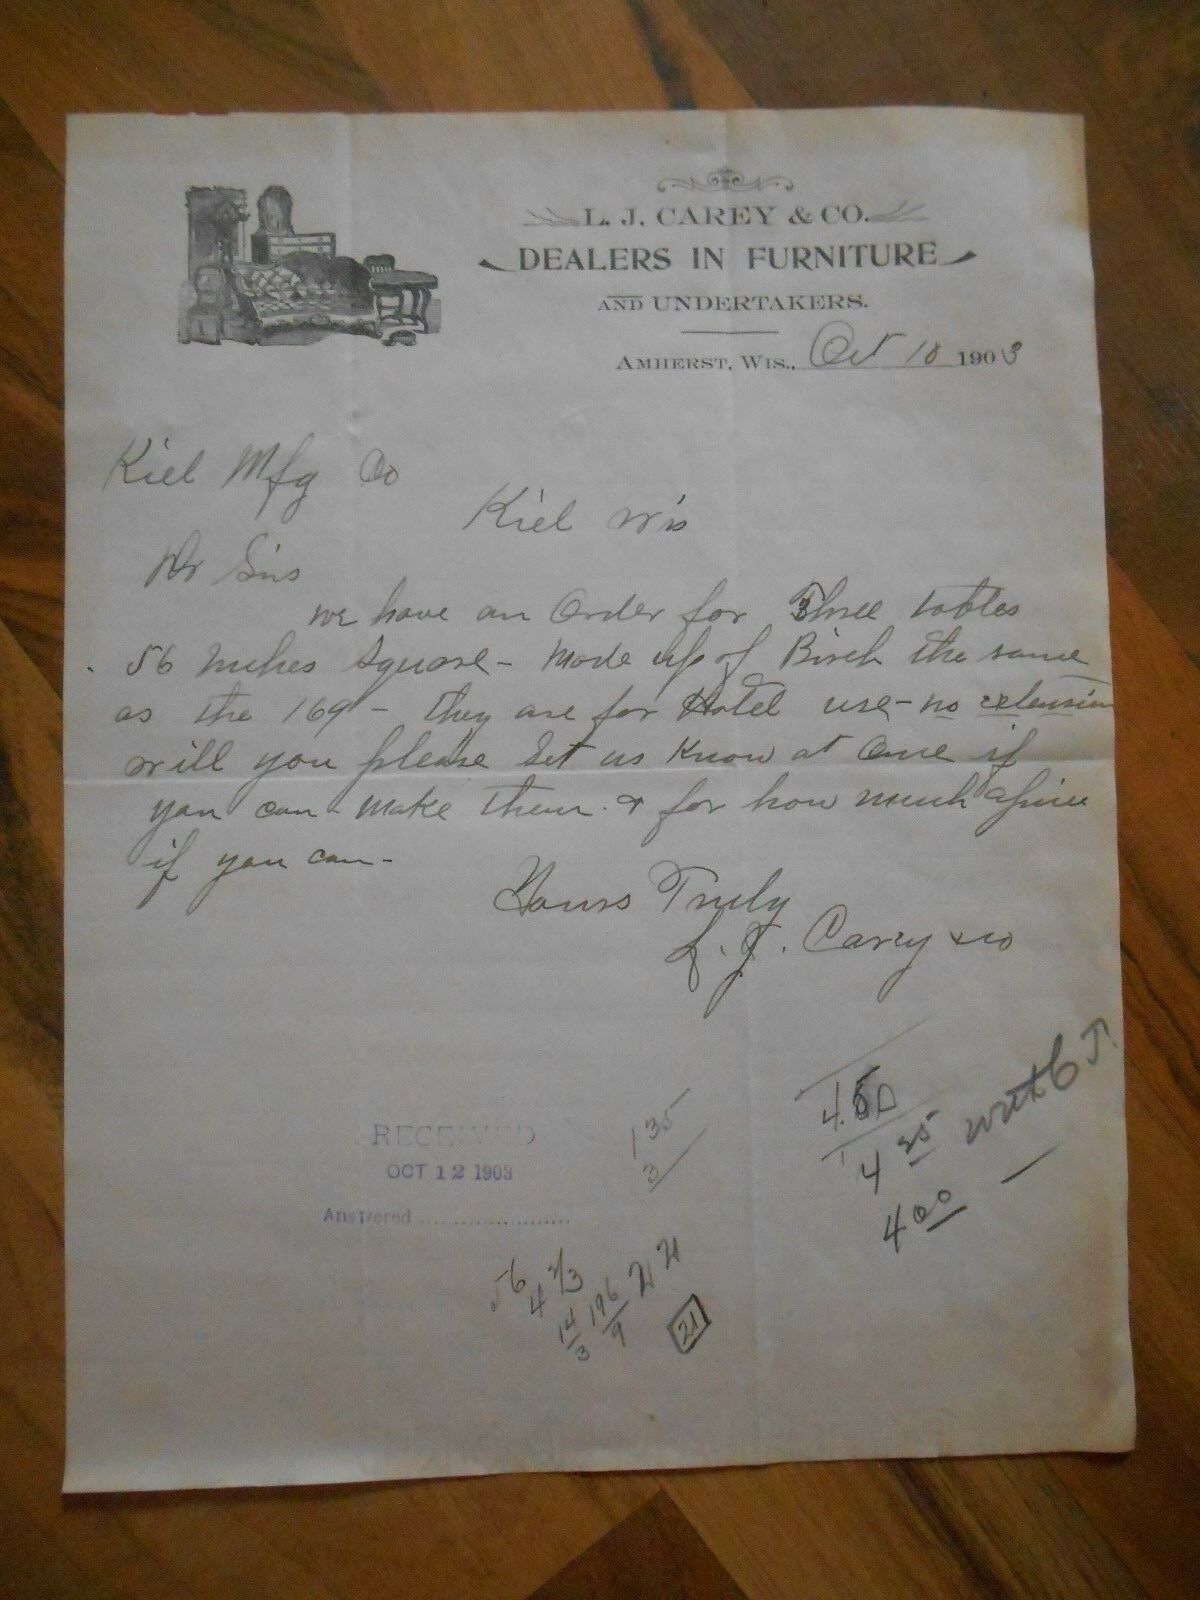 L. J. CAREY & CO.
DEALERS IN FURNITURE
AND UNDERTAKERS.
AMHERST, WIS., Oct 10 1903
Kiel Mfg Co
Kiel Wis
Dr Sirs
we have an Order for Three tables
56 Inches Square - Made up of Birch the same
as the 169 - they are for Hotel use - no extension
will you please Let us Know at Once if
you can make them & for how much apiece
if you can -
Yours Truly
L. J. Carey & Co
4.50
4 25
4 00
1 35
3
RECEIVED
OCT 12 1903
Answered
56
4 2/3
14/3
196/9
21